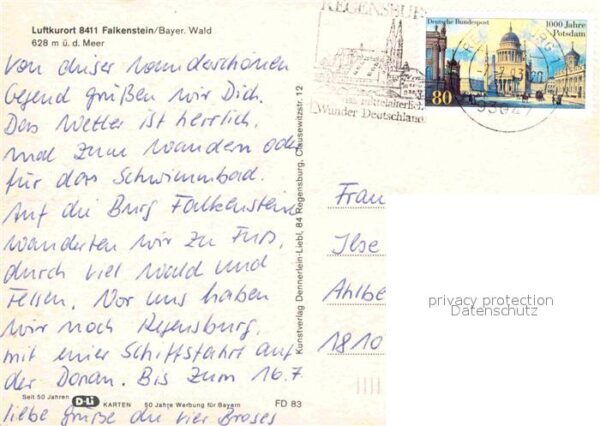 Luftkurort 8411 Falkenstein/Bayer. Wald
628 m ü. d. Meer
Von dieser wunderschönen
Gegend grüßen wir Dich.
Das Wetter ist herrlich,
mal zum wandern oder
für das Schwimmbad.
Auf die Burg Falkenstein
wanderten wir zu Fuß,
durch viel Wald und
Felsen. Vor uns haben
wir noch Regensburg,
mit einer Schiffsfahrt auf
der Donau. Bis zum 16.7
liebe Grüße die vier Broses
Seit 50 Jahren D-Li KARTEN 50 Jahre Werbung für Bayern FD 83
Kunstverlag Dennerlein-Liebl, 84 Regensburg, Clausewitzstr. 12
REGENSBURG
mittelalterl.
Wunder Deutschlands
Deutsche Bundespost
1000 Jahre
Potsdam
80
93047
Frau
Ilse
Ahlbe
1810
privacy protection
Datenschutz